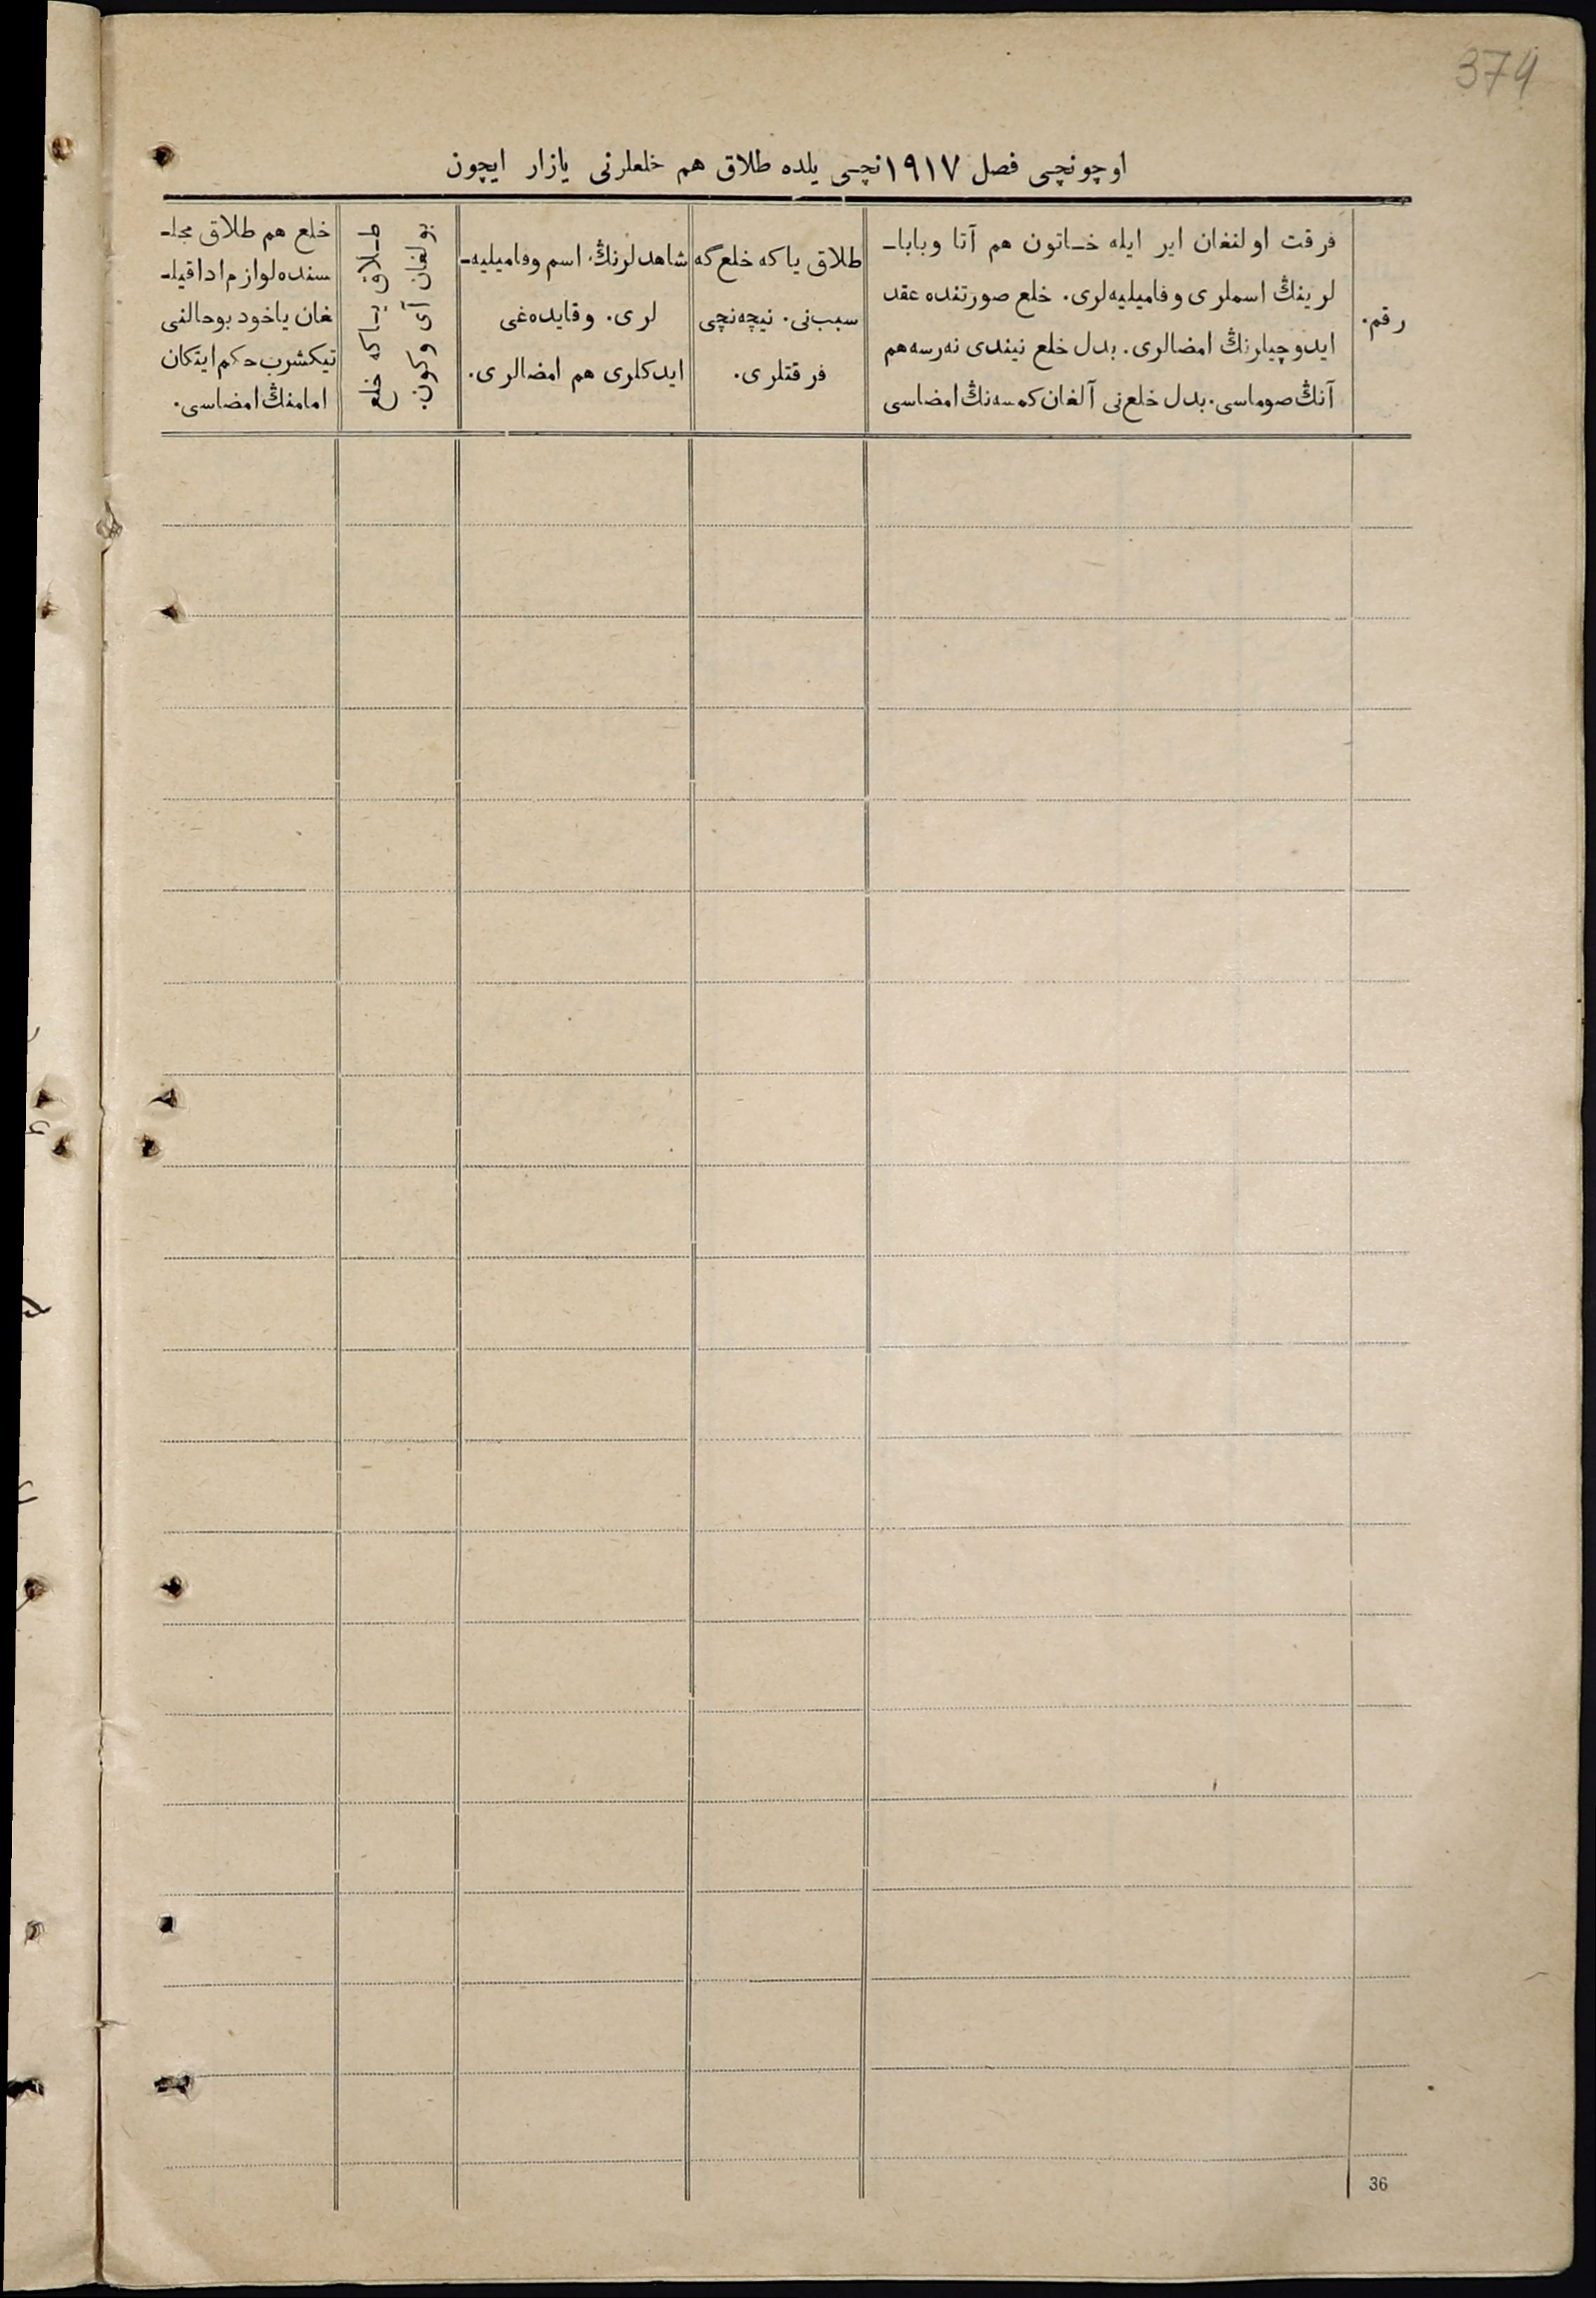 374
اوچونچی فصل ١٩١٧نچی یلده طلاق هم خلعلرنی یازار ایچون
رقم.
فرقت اولنغان ایر ایله خـاتون هم آتا وباباـ
لرینڭ اسملری وفامیلیه‌لری. خلع صورتنده عقد
ایدوچیلرنڭ امضالری. بدل خلع نیندی نه‌رسه هم
آنڭ صوماسی. بدل خلع‌نی آلغان کمسه‌نڭ امضاسی
طلاق یاکه خلع‌گه
سبب‌نی. نیچه‌نچی
فرقتلری.
شاهدلرنڭ اسم وفامیلیه‌ـ
لری. وقایده‌غی
ایدکلری هم امضالری.
طـلاق یـاکه خلع
بولغان آی وکون.
خلع هم طلاق مجلـ
سنده لوازم ادا قیلـ
غان یاخود بوحالنی
تیکشرب حکم ایتکان
امامنڭ امضاسی.
36